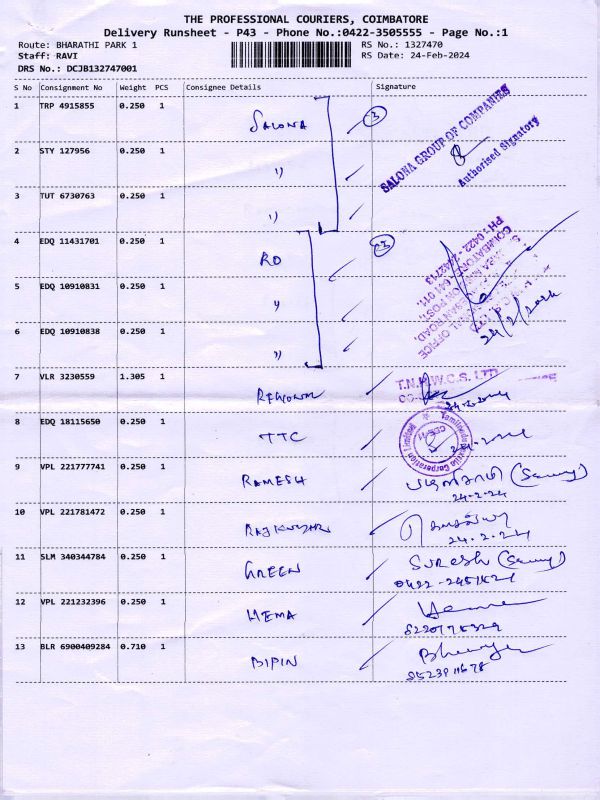 THE PROFESSIONAL COURIERS, COIMBATORE
Delivery Runsheet - P43 - Phone No.:0422-3505555 - Page No.:1
Route: BHARATHI PARK 1 RS No.: 1327470
Staff: RAVI RS Date: 24-Feb-2024
DRS No.: DCJB132747001
S No Consignment No Weight PCS Consignee Details Signature
1 TRP 4915855 0.250 1 SALONA 3 SALONA GROUP OF COMPANIES
Authorised Signatory
2 STY 127956 0.250 1 ")
3 TUT 6730763 0.250 1 ")
4 EDQ 11431701 0.250 1 RO
5 EDQ 10910831 0.250 1 "
6 EDQ 10910838 0.250 1 ")
24/2/2024
7 VLR 3230559 1.305 1 REGIONAL
8 EDQ 18115650 0.250 1 TTC
9 VPL 221777741 0.250 1 RAMESH
24-2-24
10 VPL 221781472 0.250 1 RAJKUMAR
24.2.24
11 SLM 340344784 0.250 1 GREEN SURESH
12 VPL 221232396 0.250 1 HEMA
13 BLR 6900409284 0.710 1 BIPIN